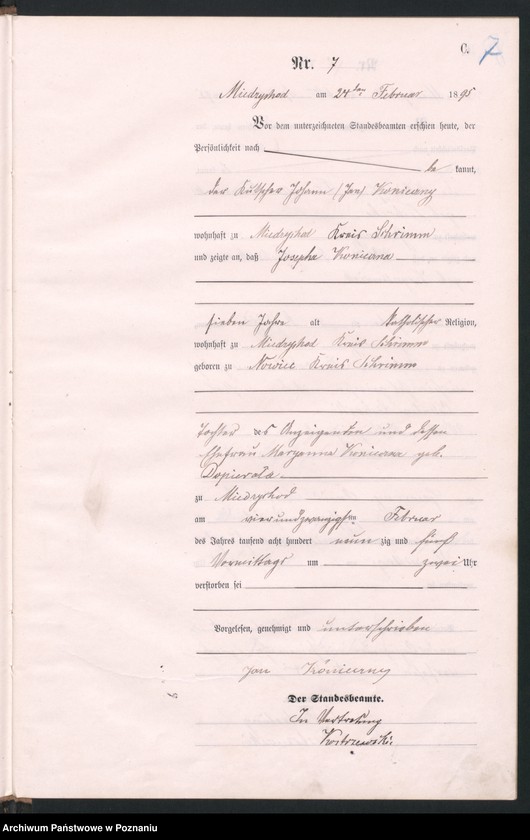 C.
7
Nr. 7
Miedzychod am 24ten Februar 1895
Vor dem unterzeichneten Standesbeamten erschien heute, der
Persönlichkeit nach
be kannt,
der Kutscher Johann (Jan) Konieczny
wohnhaft zu Miedzychod Kreis Schrimm
und zeigte an, daß Josepha
sieben Jahre alt katholischer Religion,
wohnhaft zu Miedzychod Kreis Schrimm
geboren zu Kreis Schrimm
Tochter des Anzeigenden und dessen
Ehefrau Maryanna geb.
Dopierala
zu Miedzychod
am vierundzwanzigsten Februar
des Jahres tausend acht hundert neun zig und fünf
Vormittags um zwei Uhr
verstorben sei
Vorgelesen, genehmigt und unterschrieben
Jan
Der Standesbeamte.
In Vertretung
Kostrzewski
Archiwum Państwowe w Poznaniu